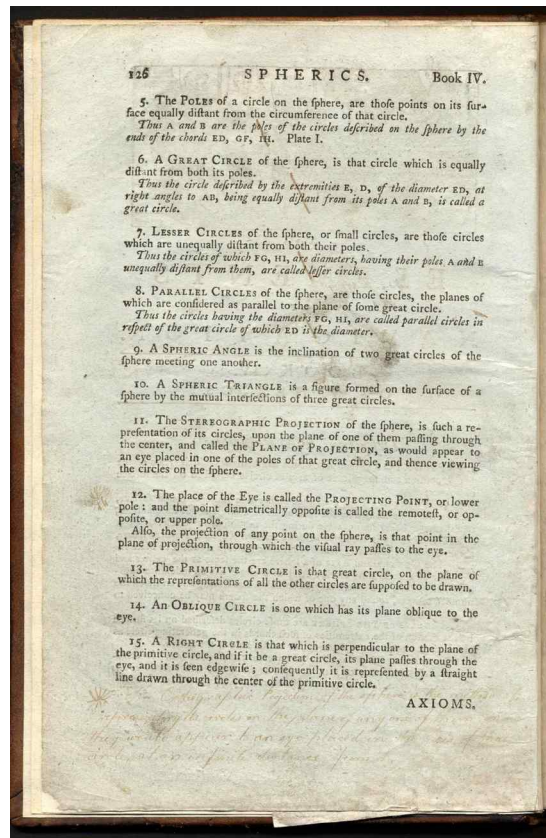 126 SPHERICS. Book IV.
5. The POLES of a circle on the sphere, are those points on its sur-
face equally diſtant from the circumference of that circle.
Thus A and B are the poles of the circles deſcribed on the ſphere by the
ends of the chords ED, GF, IH. Plate I.
6. A GREAT CIRCLE of the ſphere, is that circle which is equally
diſtant from both its poles.
Thus the circle deſcribed by the extremities E, D, of the diameter ED, at
right angles to AB, being equally diſtant from its poles A and B, is called a
great circle.
7. LESSER CIRCLES of the ſphere, or ſmall circles, are thoſe circles
which are unequally diſtant from both their poles.
Thus the circles of which FG, HI, are diameters, having their poles A and B
unequally diſtant from them, are called leſſer circles.
8. PARALLEL CIRCLES of the ſphere, are thoſe circles, the planes of
which are conſidered as parallel to the plane of ſome great circle.
Thus the circles having the diameters FG, HI, are called parallel circles in
reſpect of the great circle of which ED is the diameter.
9. A SPHERIC ANGLE is the inclination of two great circles of the
ſphere meeting one another.
10. A SPHERIC TRIANGLE is a figure formed on the ſurface of a
ſphere by the mutual interſections of three great circles.
11. The STEREOGRAPHIC PROJECTION of the ſphere, is ſuch a re-
preſentation of its circles, upon the plane of one of them paſſing through
the center, and called the PLANE OF PROJECTION, as would appear to
an eye placed in one of the poles of that great circle, and thence viewing
the circles on the ſphere.
12. The place of the Eye is called the PROJECTING POINT, or lower
pole: and the point diametrically oppoſite is called the remoteſt, or op-
poſite, or upper pole.
Alſo, the projection of any point on the ſphere, is that point in the
plane of projection, through which the viſual ray paſſes to the eye.
13. The PRIMITIVE CIRCLE is that great circle, on the plane of
which the repreſentations of all the other circles are ſuppoſed to be drawn.
14. An OBLIQUE CIRCLE is one which has its plane oblique to the
eye.
15. A RIGHT CIRCLE is that which is perpendicular to the plane of
the primitive circle, and if it be a great circle, its plane paſſes through the
eye, and it is ſeen edgewiſe; conſequently it is repreſented by a ſtraight
line drawn through the center of the primitive circle.
AXIOMS.